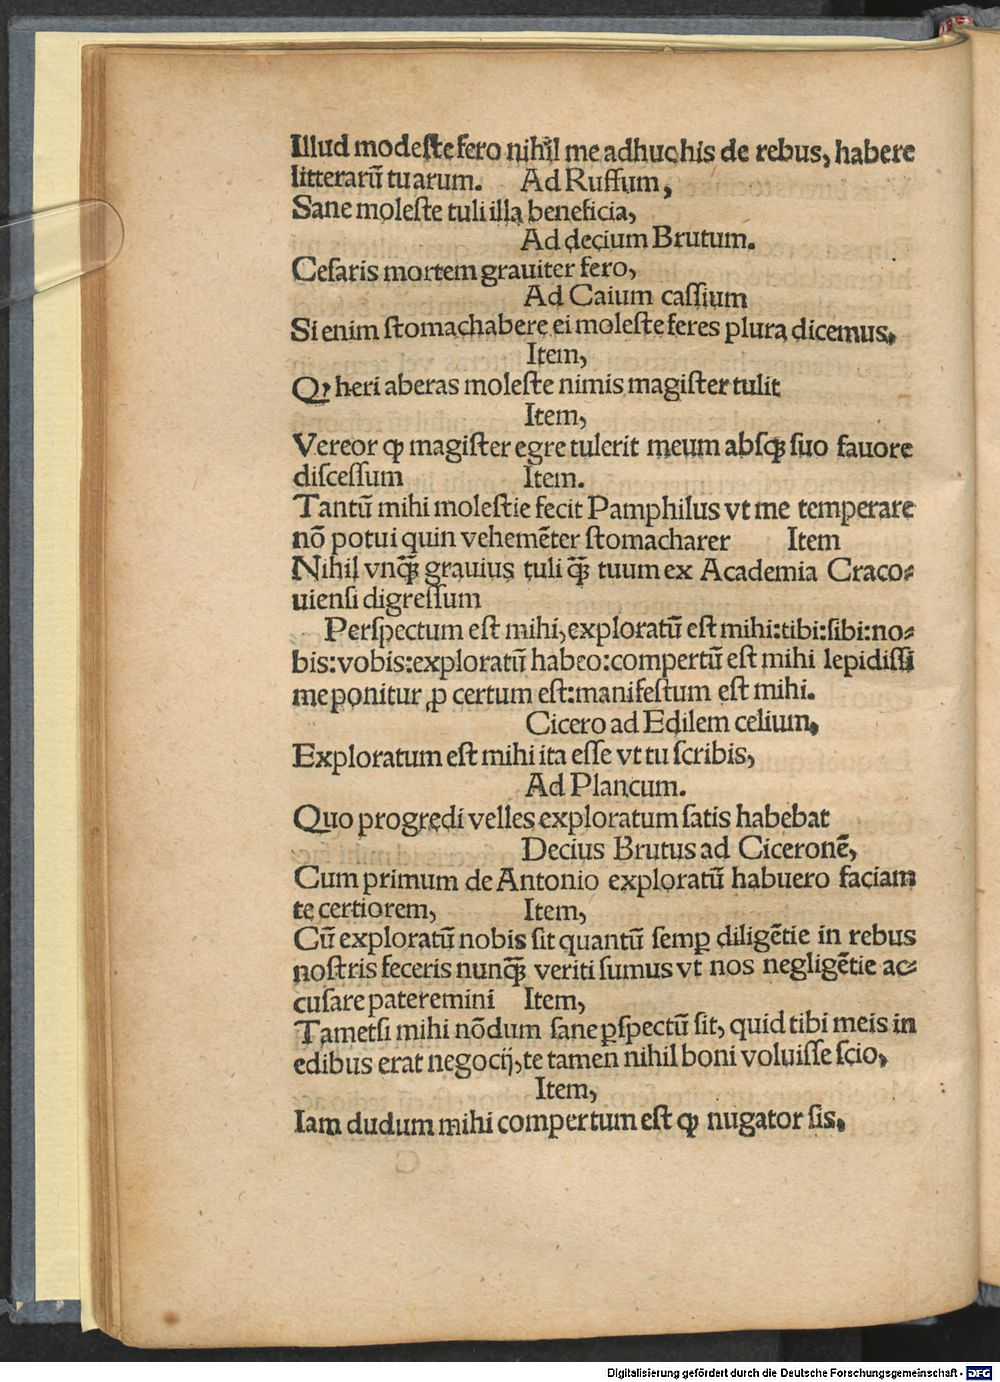 Illud modeſte fero nihil me adhuc his de rebus, habere
litterarū tuarum. Ad Ruffum,
Sane moleſte tuli illa beneficia,
Ad decium Brutum.
Ceſaris mortem grauiter fero,
Ad Caium caſſium
Si enim ſtomachabere ei moleſte feres plura dicemus.
Item,
Qꝫ heri aberas moleſte nimis magiſter tulit
Item,
Vereor ꝙ magiſter egre tulerit meum abſqꝫ ſuo fauore
diſceſſum Item.
Tantū mihi moleſtie fecit Pamphilus vt me temperare
nō potui quin vehemēter ſtomacharer Item
Nihil vnqꝫ̄ grauius tuli qꝫ̄ tuum ex Academia Craco⸗
uienſi digreſſum
Perſpectum eſt mihi, exploratū eſt mihi:tibi:ſibi:no⸗
bis:vobis:exploratū habeo:compertū eſt mihi lepidiſſi
me ponitur ꝓ certum eſt:manifeſtum eſt mihi.
Cicero ad Edilem celium.
Exploratum eſt mihi ita eſſe vt tu ſcribis,
Ad Plancum.
Quo progredi velles exploratum ſatis habebat
Decius Brutus ad Ciceronē,
Cum primum de Antonio exploratū habuero faciam
te certiorem, Item,
Cū exploratū nobis ſit quantū ſemꝑ diligētie in rebus
noſtris feceris nunqꝫ̄ veriti ſumus vt nos negligētie ac⸗
cuſare pateremini Item,
Tametſi mihi nōdum ſane ꝑſpectū ſit, quid tibi meis in
edibus erat negocij, te tamen nihil boni voluiſſe ſcio,
Item,
Iam dudum mihi compertum eſt ꝙ nugator ſis.
Digitalisierung gefördert durch die Deutsche Forschungsgemeinschaft - DFG